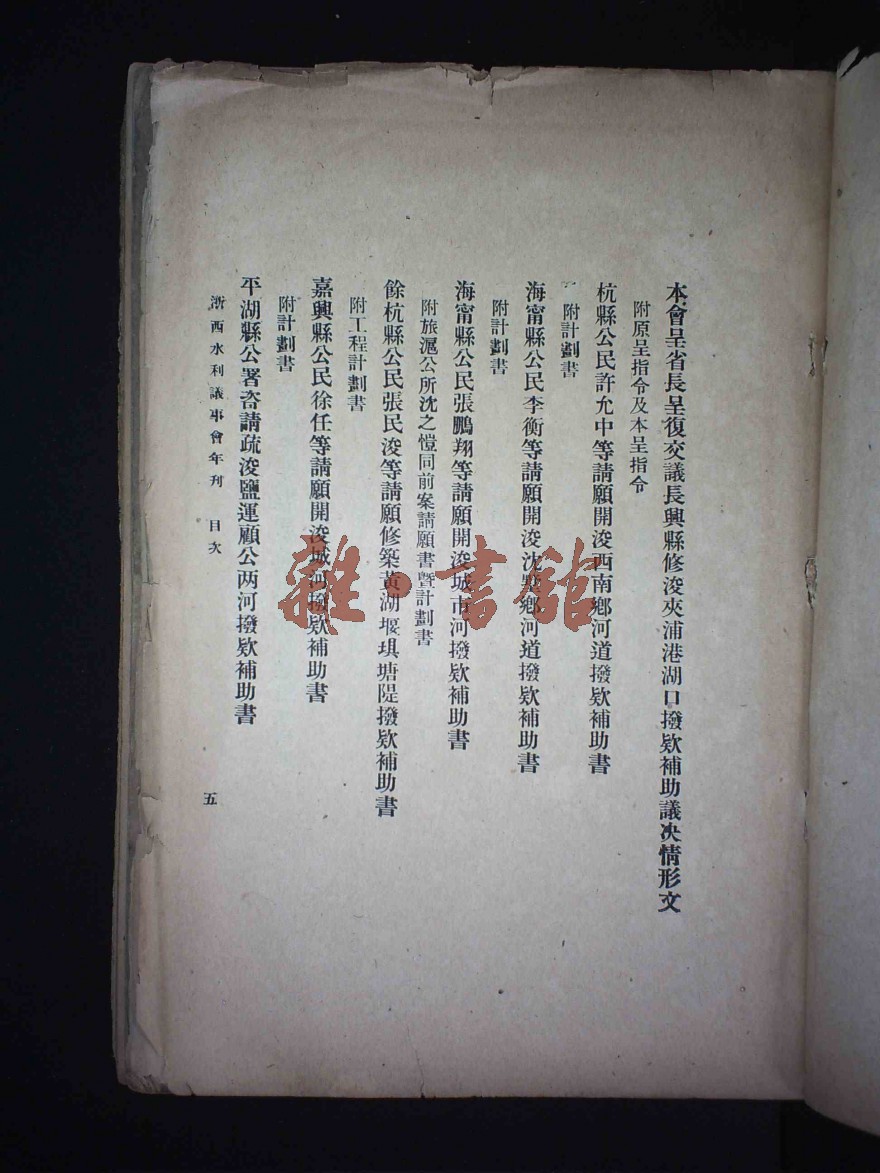 本會呈省長呈復交議長興縣修浚夾浦港湖口撥欵補助議决情形文
附原呈指令及本呈指令
杭縣公民許允中等請願開浚西南鄉河道撥欵補助書
附計劃書
海甯縣公民李衡等請願開浚沈塟鄉河道撥欵補助書
附計劃書
海甯縣公民張鵬翔等請願開浚城市河撥欵補助書
附旅滬公所沈之愷同前案請願書暨計劃書
餘杭縣公民張民浚等請願修築黃湖堰埧塘隄撥欵補助書
附工程計劃書
嘉興縣公民徐任等請願開浚城河撥欵補助書
附計劃書
平湖縣公署咨請疏浚鹽運顧公两河撥欵補助書
浙西水利議事會年刊 目次
五
雜·書館